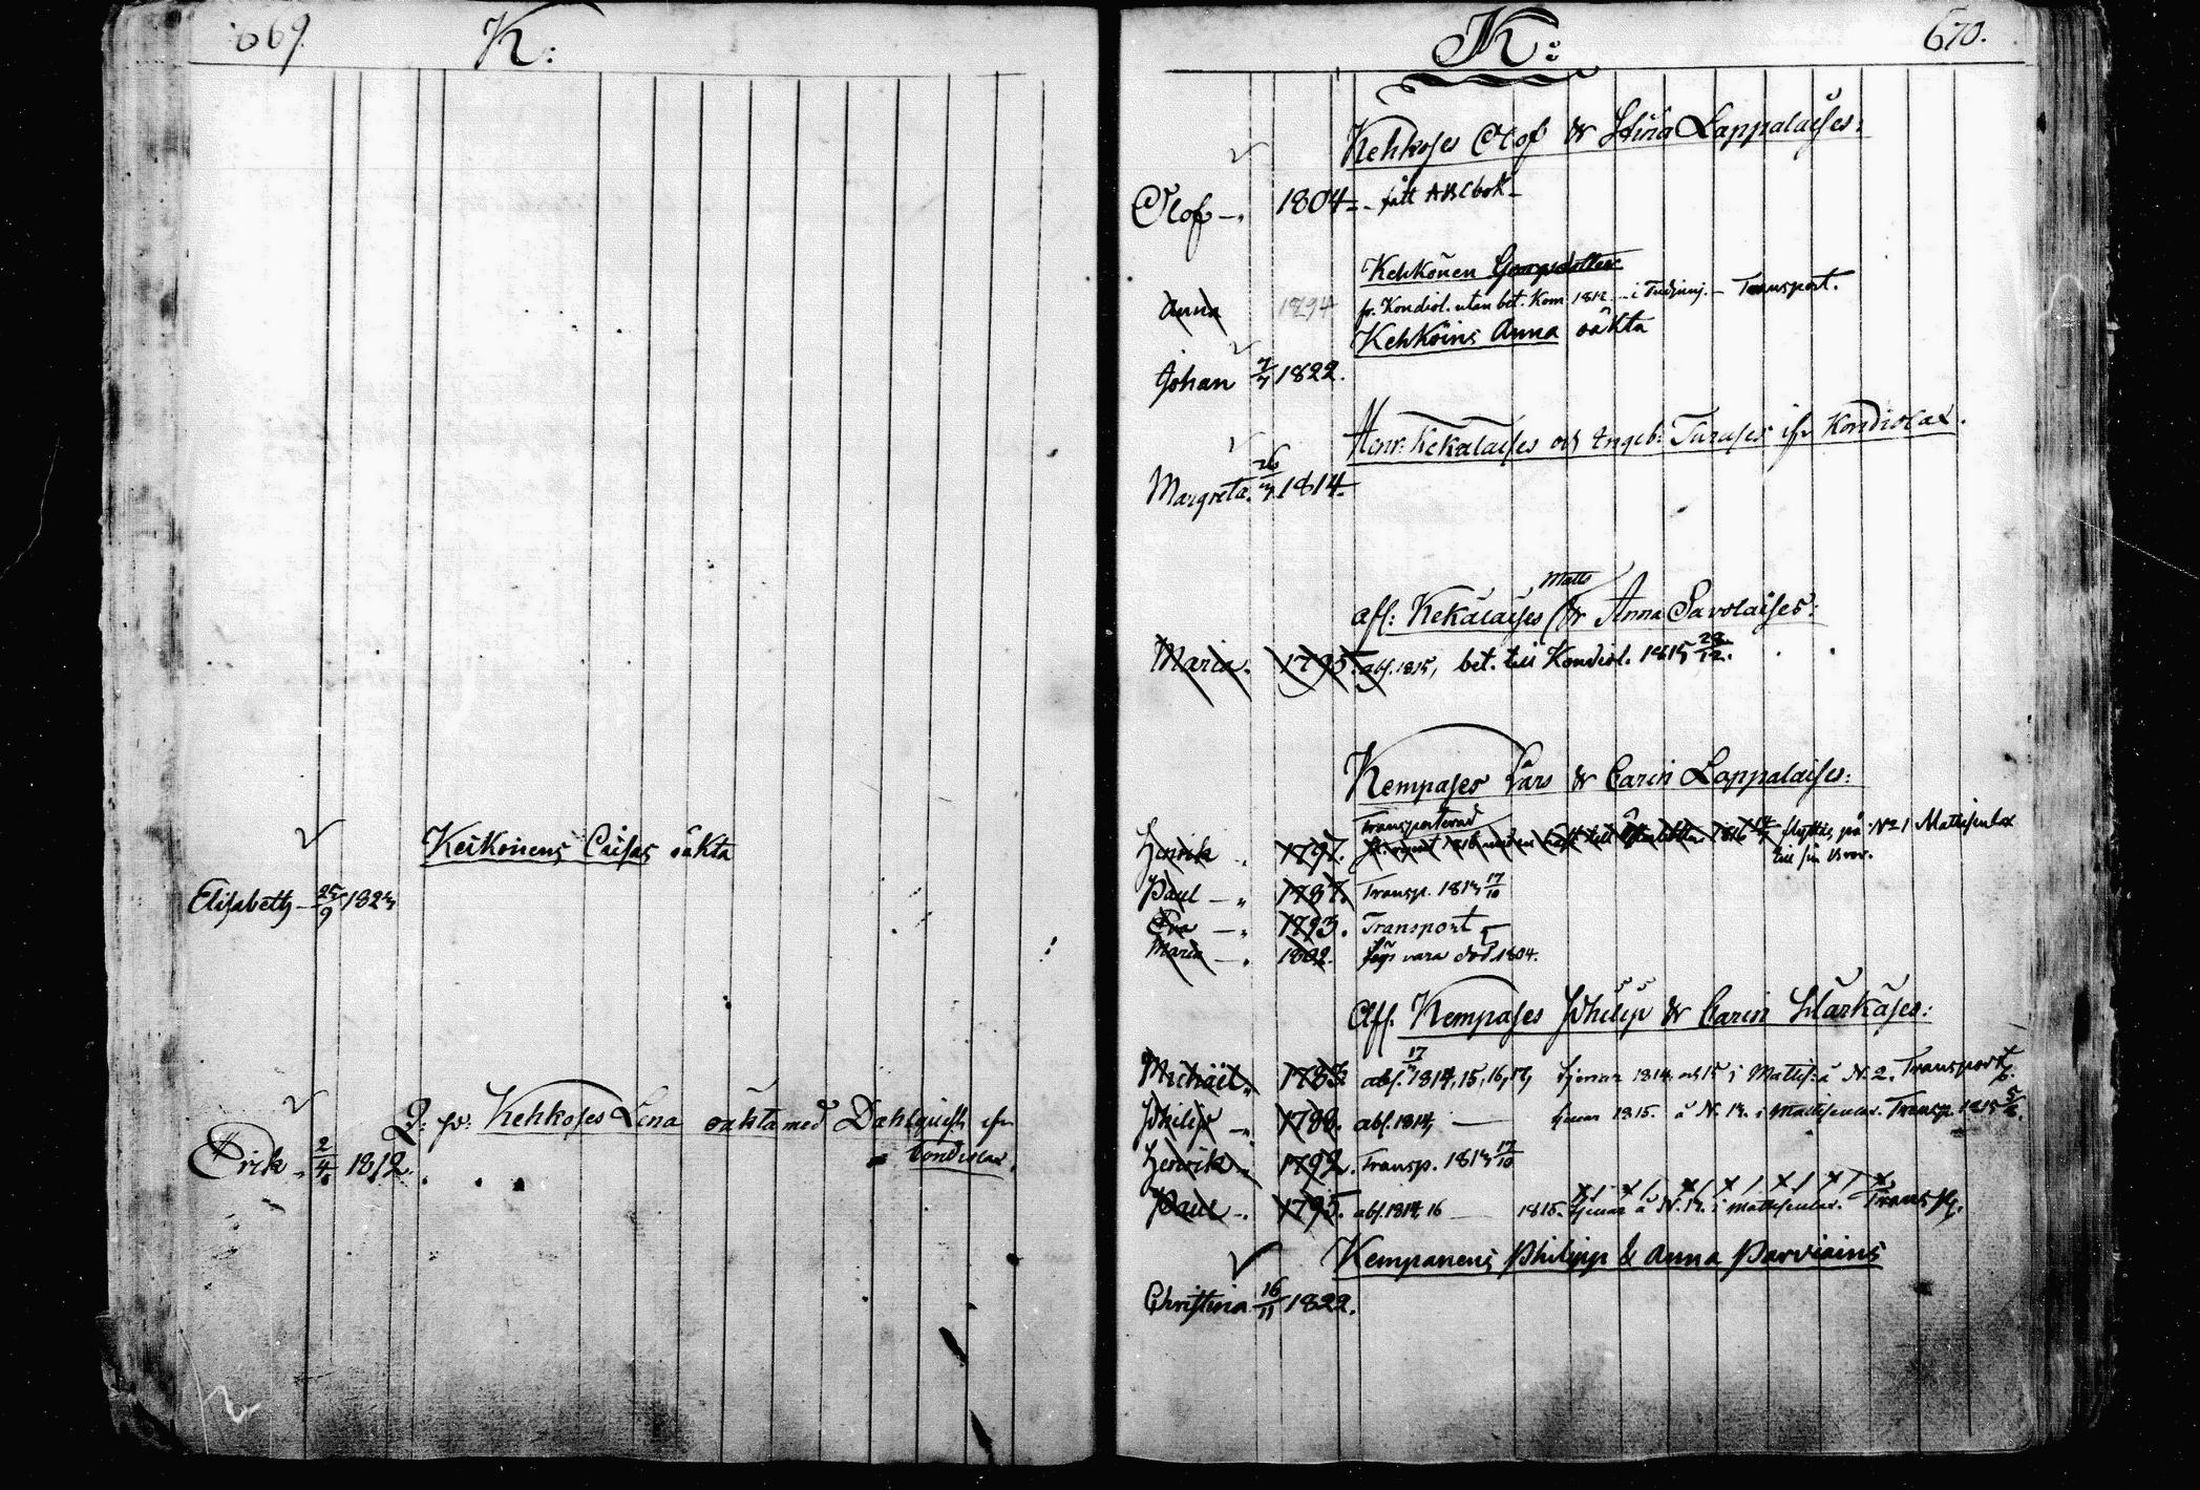 669. K:
Keikoinens Caisas oäkta
Elisabeth — 25/9 1823
D: fr: Kehkoses Lena oäkta med Dahlquist ifr
Condiolax.
Erik 2/4 1812.
K: 670.
Kehkoses Olof & Stina Lappalaises:
Olof —. 1804 — fått ABCbok —
Kehkönen
Anna 1794 fr. Kondiol. utan bet. Kom 1812 — i — Transport.
Kehköins Anna oäkta
Johan 7/7 1822.
Henr: Kekalaises och Ingeb: Turuses ifr Kondiolax.
Margreta. 26/3 1814.
Matts
aff: Kekälaises & Anna Savolaises:
Maria. 1795. abs. 1815, bet. till Kondiol. 1815 28/12.
Kempases Lars & Carin Lappalaises:
Transporterad
Henrik . 1797. 1816 flyttat på No 1 Mattisenlax
till sin
Paul — „ 1787. Transp. 1813 17/10
Eva —. 1793. Transport
Maria —. 1802. säges vara död 1804.
Aff. Kempases Philip & Carin Starkases:
Michäel. 1783. abs. 17/3 1814, 15, 16, 17, tjenar 1814 och 15 i Mattis: å N. 2. Transport
Philip — 1788. abs. 1814, — tjenar 1815. å N. 13. i Mattisenlax. Transp. 1815 5/6.
Henrik. 1792. Transp. 1813 17/10
Paul —. 1795. abs. 1814, 16 — 1815. tjenar å N. 13. i Mattisenlax. Transp.
Kempanens Philipp & Anna Parviains
Christina 16/11 1822.